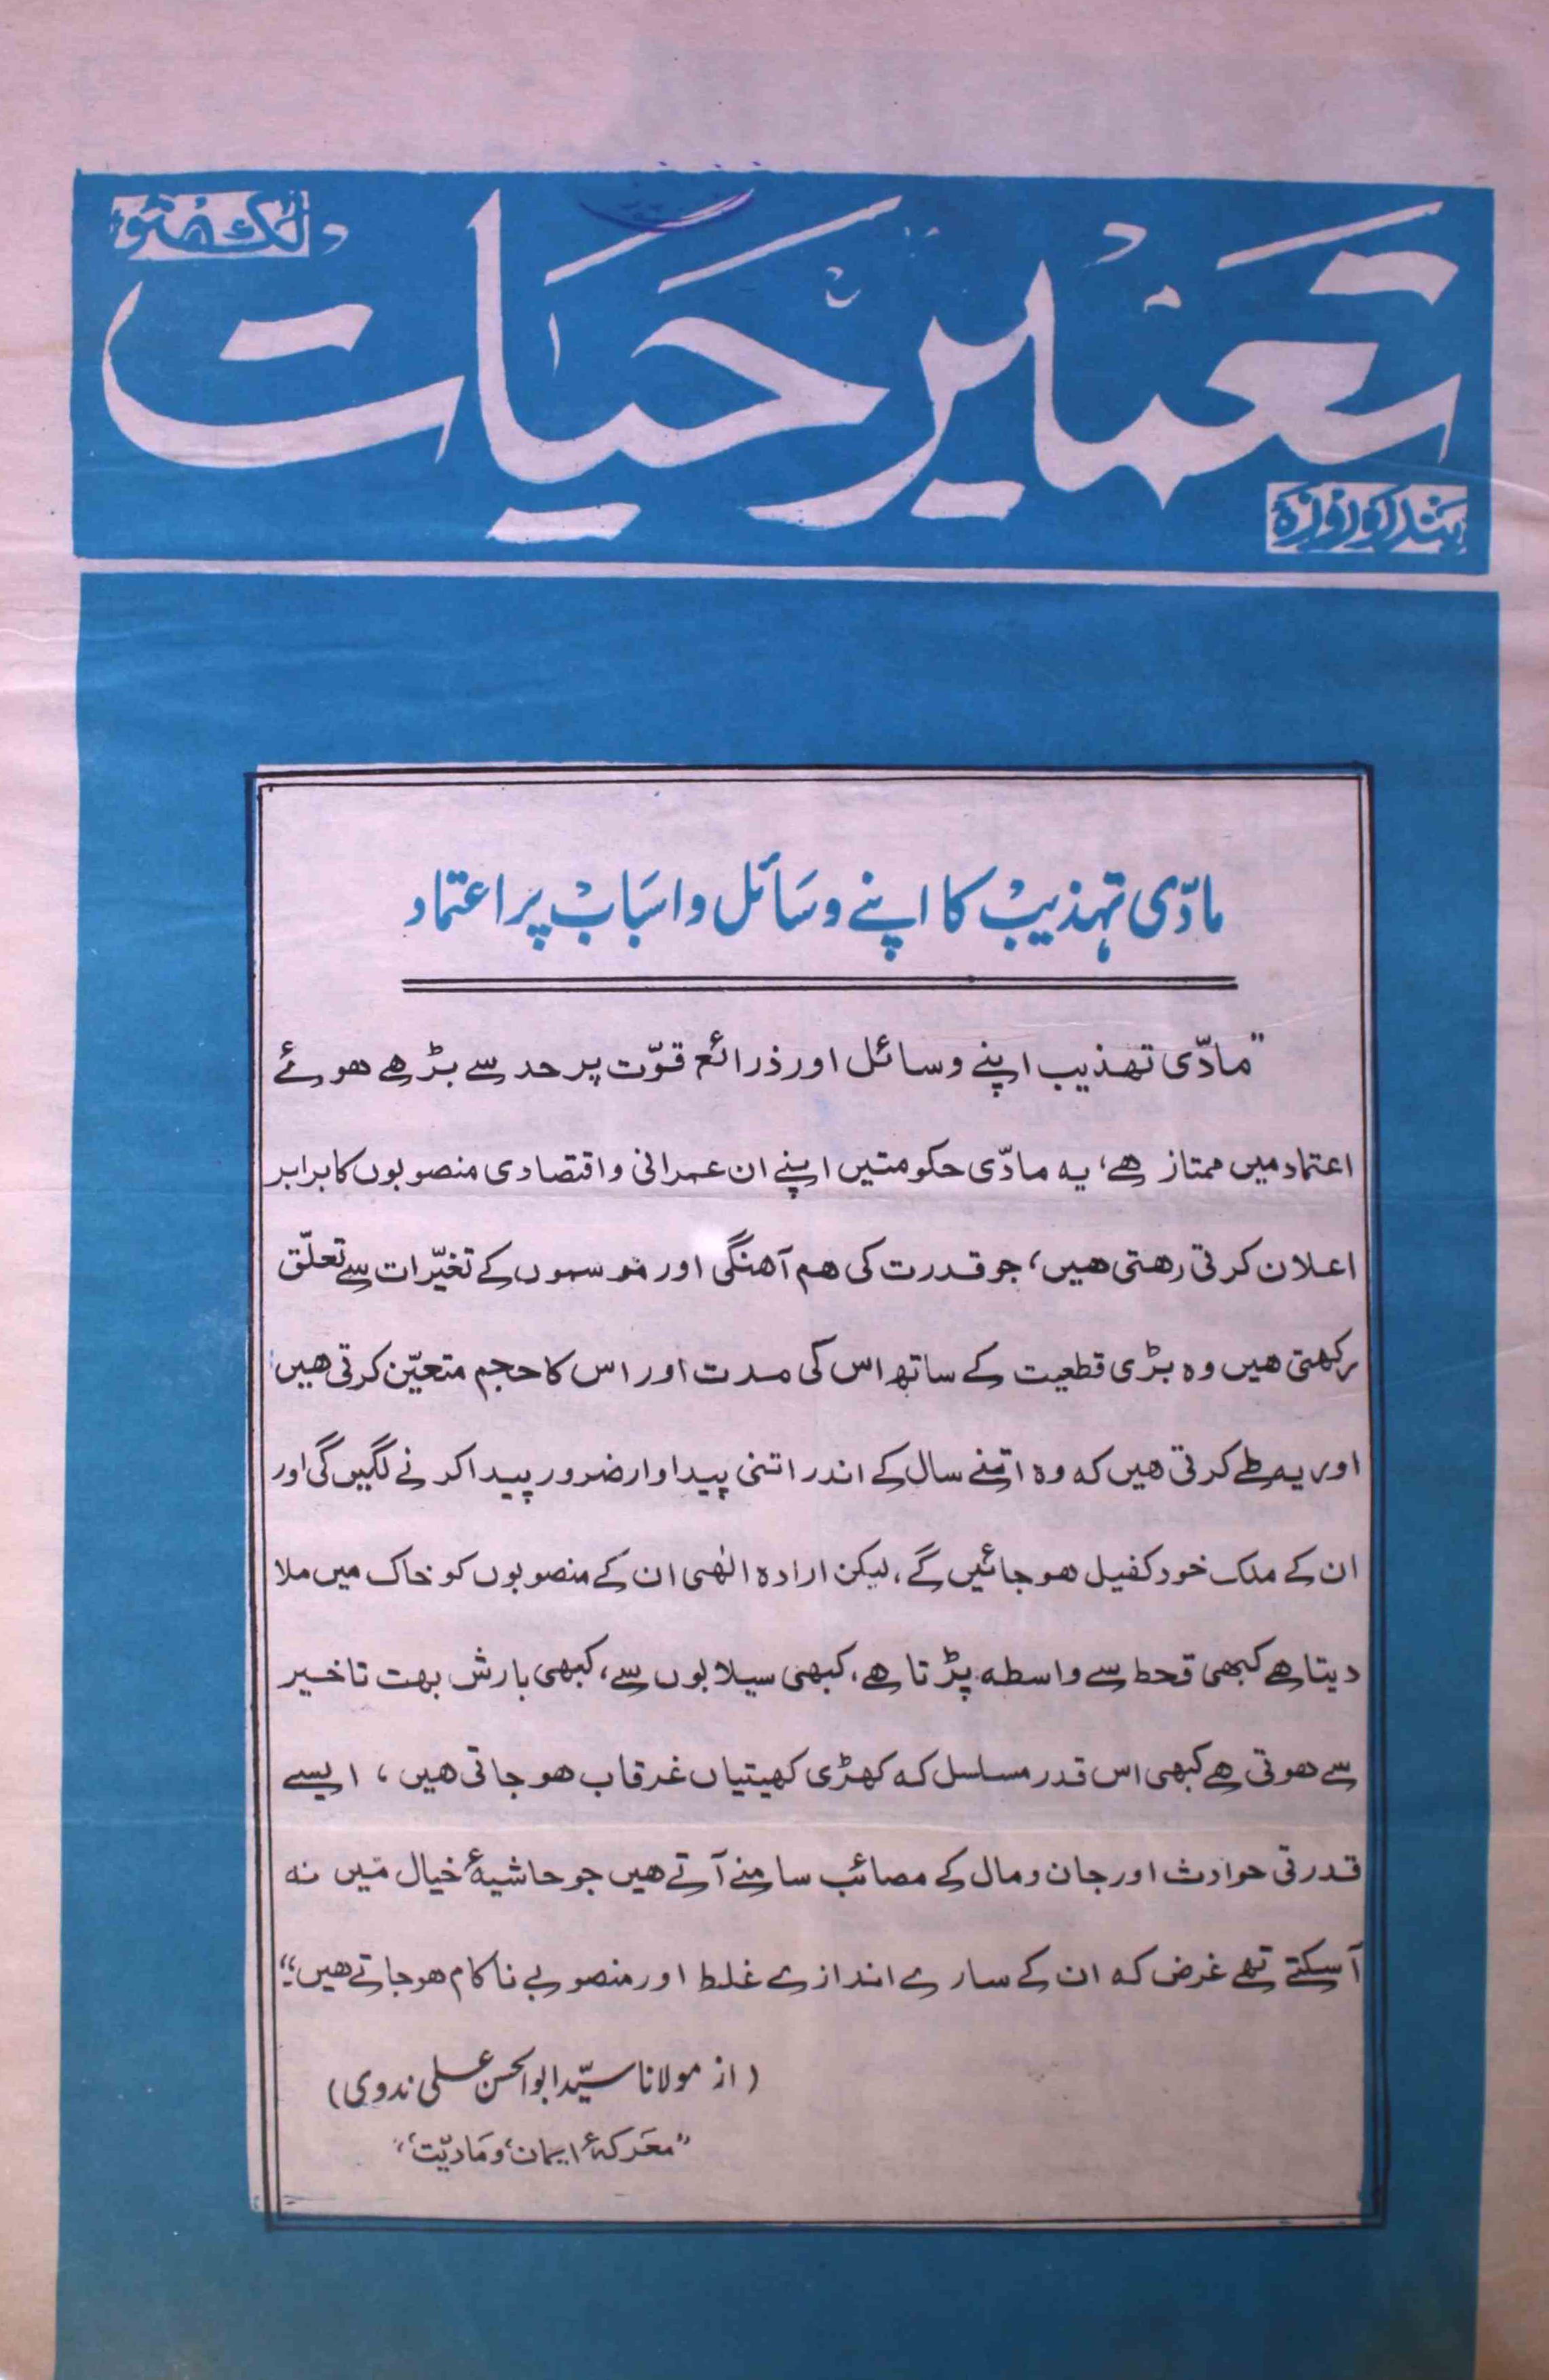 لکھنؤ
تعمیر حیات
پندرہ روزہ
مادّی تہذیب کا اپنے وسائل و اسباب پر اعتماد
"مادّی تھذیب اپنے وسائل اور ذرائع قوّت پر حد سے بڑھے ھوئے
اعتماد میں ممتاز ھے، یہ مادّی حکومتیں اپنے ان عمرانی و اقتصادی منصوبوں کا برابر
اعلان کرتی رھتی ھیں، جو قدرت کی ھم آھنگی اور موسموں کے تغیّرات سے تعلّق
رکھتی ھیں وہ بڑی قطعیت کے ساتھ اس کی مدت اور اس کا حجم متعیّن کرتی ھیں
اور یہ طے کرتی ھیں کہ وہ اتنے سال کے اندر اتنی پیداوار ضرور پیدا کرنے لگیں گی اور
ان کے ملک خود کفیل ھوجائیں گے، لیکن ارادہ الٰھی ان کے منصوبوں کو خاک میں ملا
دیتا ھے کبھی قحط سے واسطہ پڑتا ھے، کبھی سیلابوں سے، کبھی بارش بھت تاخیر
سے ھوتی ھے کبھی اس قدر مسلسل کہ کھڑی کھیتیاں غرقاب ھوجاتی ھیں، ایسے
قدرتی حوادث اور جان و مال کے مصائب سامنے آتے ھیں جو حاشیۂ خیال میں نہ
آسکتے تھے غرض کہ ان کے سارے اندازے غلط اور منصوبے ناکام ھوجاتے ھیں؛"
(از مولانا سیّد ابوالحسن علی ندوی)
"معرکۂ ایمان و مادیّت"